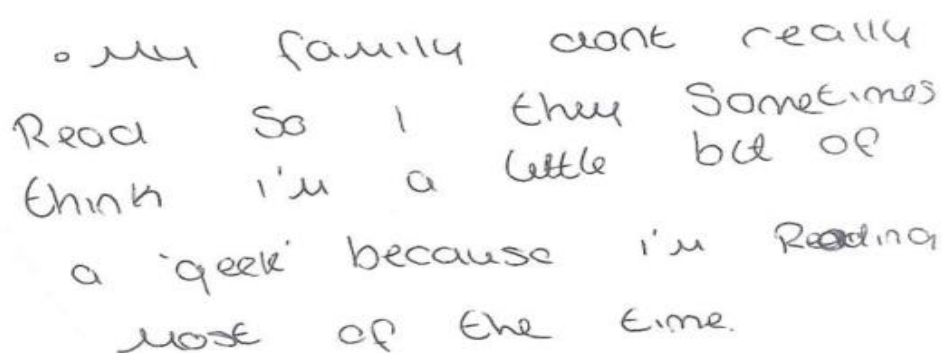 • My family dont really
Read So I they Sometimes
think i'm a little bit of
a 'geek' because i'm Reading
most of the time.